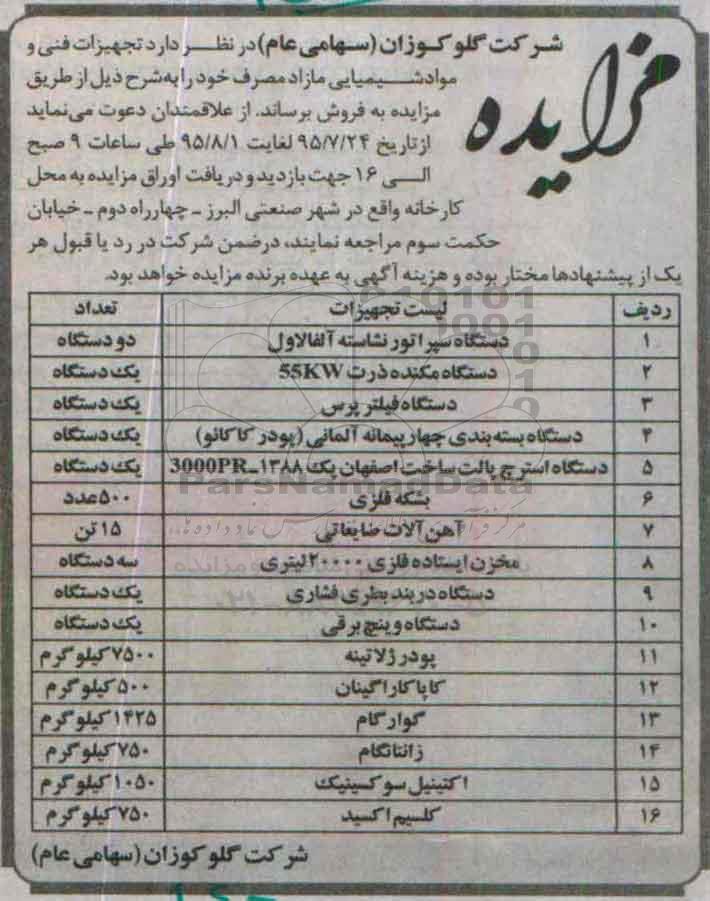 مزایده
شرکت گلوکوزان (سهامی عام) در نظر دارد تجهیزات فنی و
مواد شیمیایی مازاد مصرف خود را به شرح ذیل از طریق
مزایده به فروش برساند. از علاقمندان دعوت می‌نماید
از تاریخ ۹۵/۷/۲۴ لغایت ۹۵/۸/۱ طی ساعات ۹ صبح
الی ۱۶ جهت بازدید و دریافت اوراق مزایده به محل
کارخانه واقع در شهر صنعتی البرز ـ چهارراه دوم ـ خیابان
حکمت سوم مراجعه نمایند، درضمن شرکت در رد یا قبول هر
یک از پیشنهادها مختار بوده و هزینه آگهی به عهده برنده مزایده خواهد بود.
ردیف لیست تجهیزات تعداد
۱ دستگاه سپراتور نشاسته آلفالاول دو دستگاه
۲ دستگاه مکنده ذرت 55KW یک دستگاه
۳ دستگاه فیلتر پرس یک دستگاه
۴ دستگاه بسته بندی چهار پیمانه آلمانی (پودر کاکائو) یک دستگاه
۵ دستگاه استرچ پالت ساخت اصفهان پک ۱۳۸۸ـ3000PR یک دستگاه
۶ بشکه فلزی ۵۰۰ عدد
۷ آهن آلات ضایعاتی ۱۵ تن
۸ مخزن ایستاده فلزی ۲۰۰۰۰ لیتری سه دستگاه
۹ دستگاه دربند بطری فشاری یک دستگاه
۱۰ دستگاه وینچ برقی یک دستگاه
۱۱ پودر ژلاتینه ۷۵۰۰ کیلوگرم
۱۲ کاپا کاراگینان ۵۰۰ کیلوگرم
۱۳ گوارگام ۱۴۲۵ کیلوگرم
۱۴ زانتانگام ۷۵۰ کیلوگرم
۱۵ اکتنیل سوکسینیک ۱۰۵۰ کیلوگرم
۱۶ کلسیم اکسید ۷۵۰ کیلوگرم
شرکت گلوکوزان (سهامی عام)
ParsNamadData